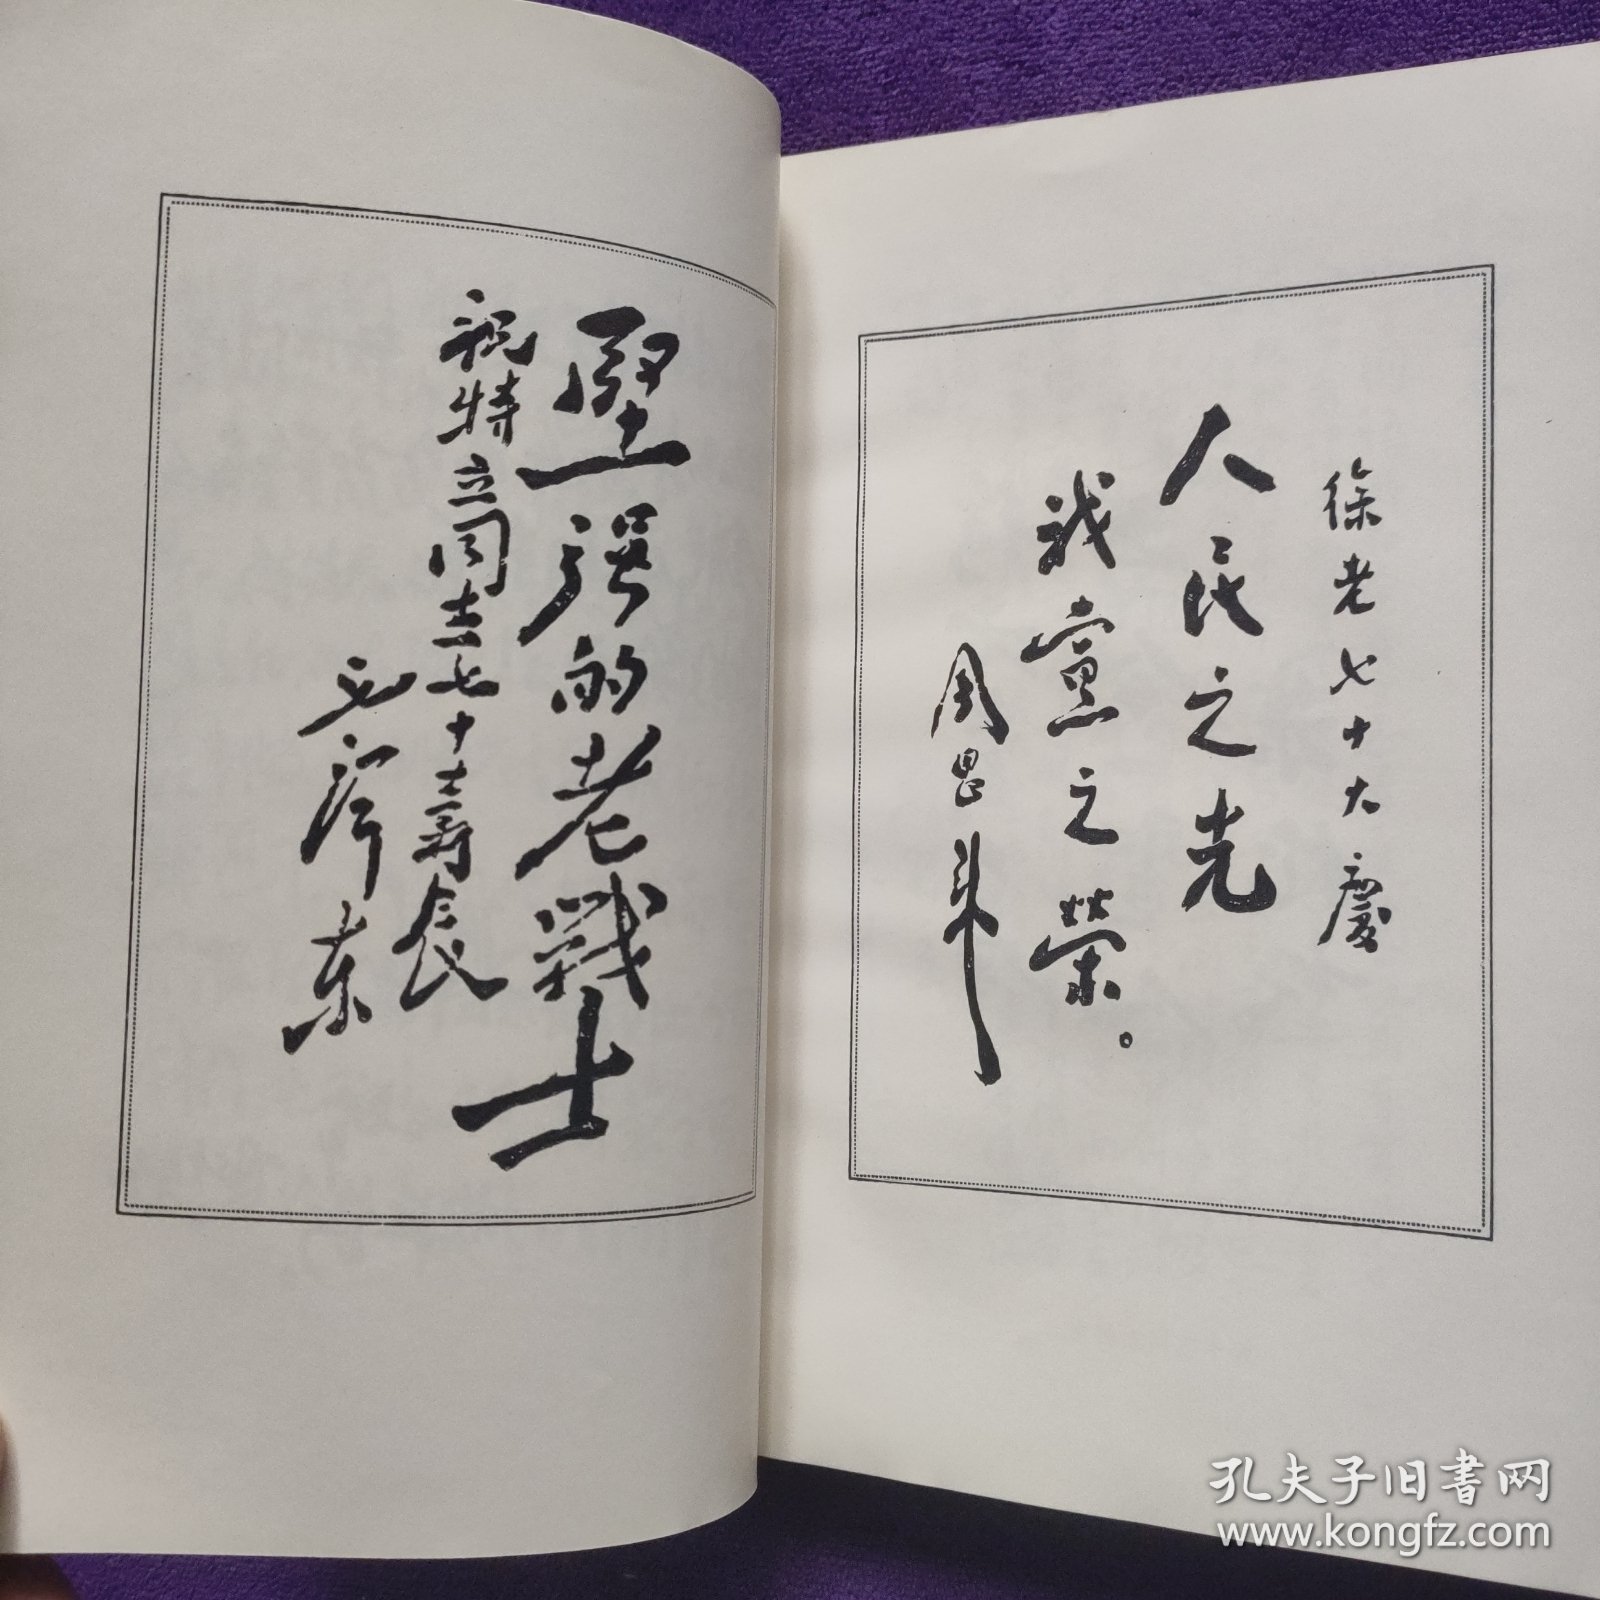 堅强的老戰士
祝特立同志七十大壽
毛澤東
徐老七十大慶
人民之光
我黨之榮。
周恩来
孔夫子旧書网
www.kongfz.com